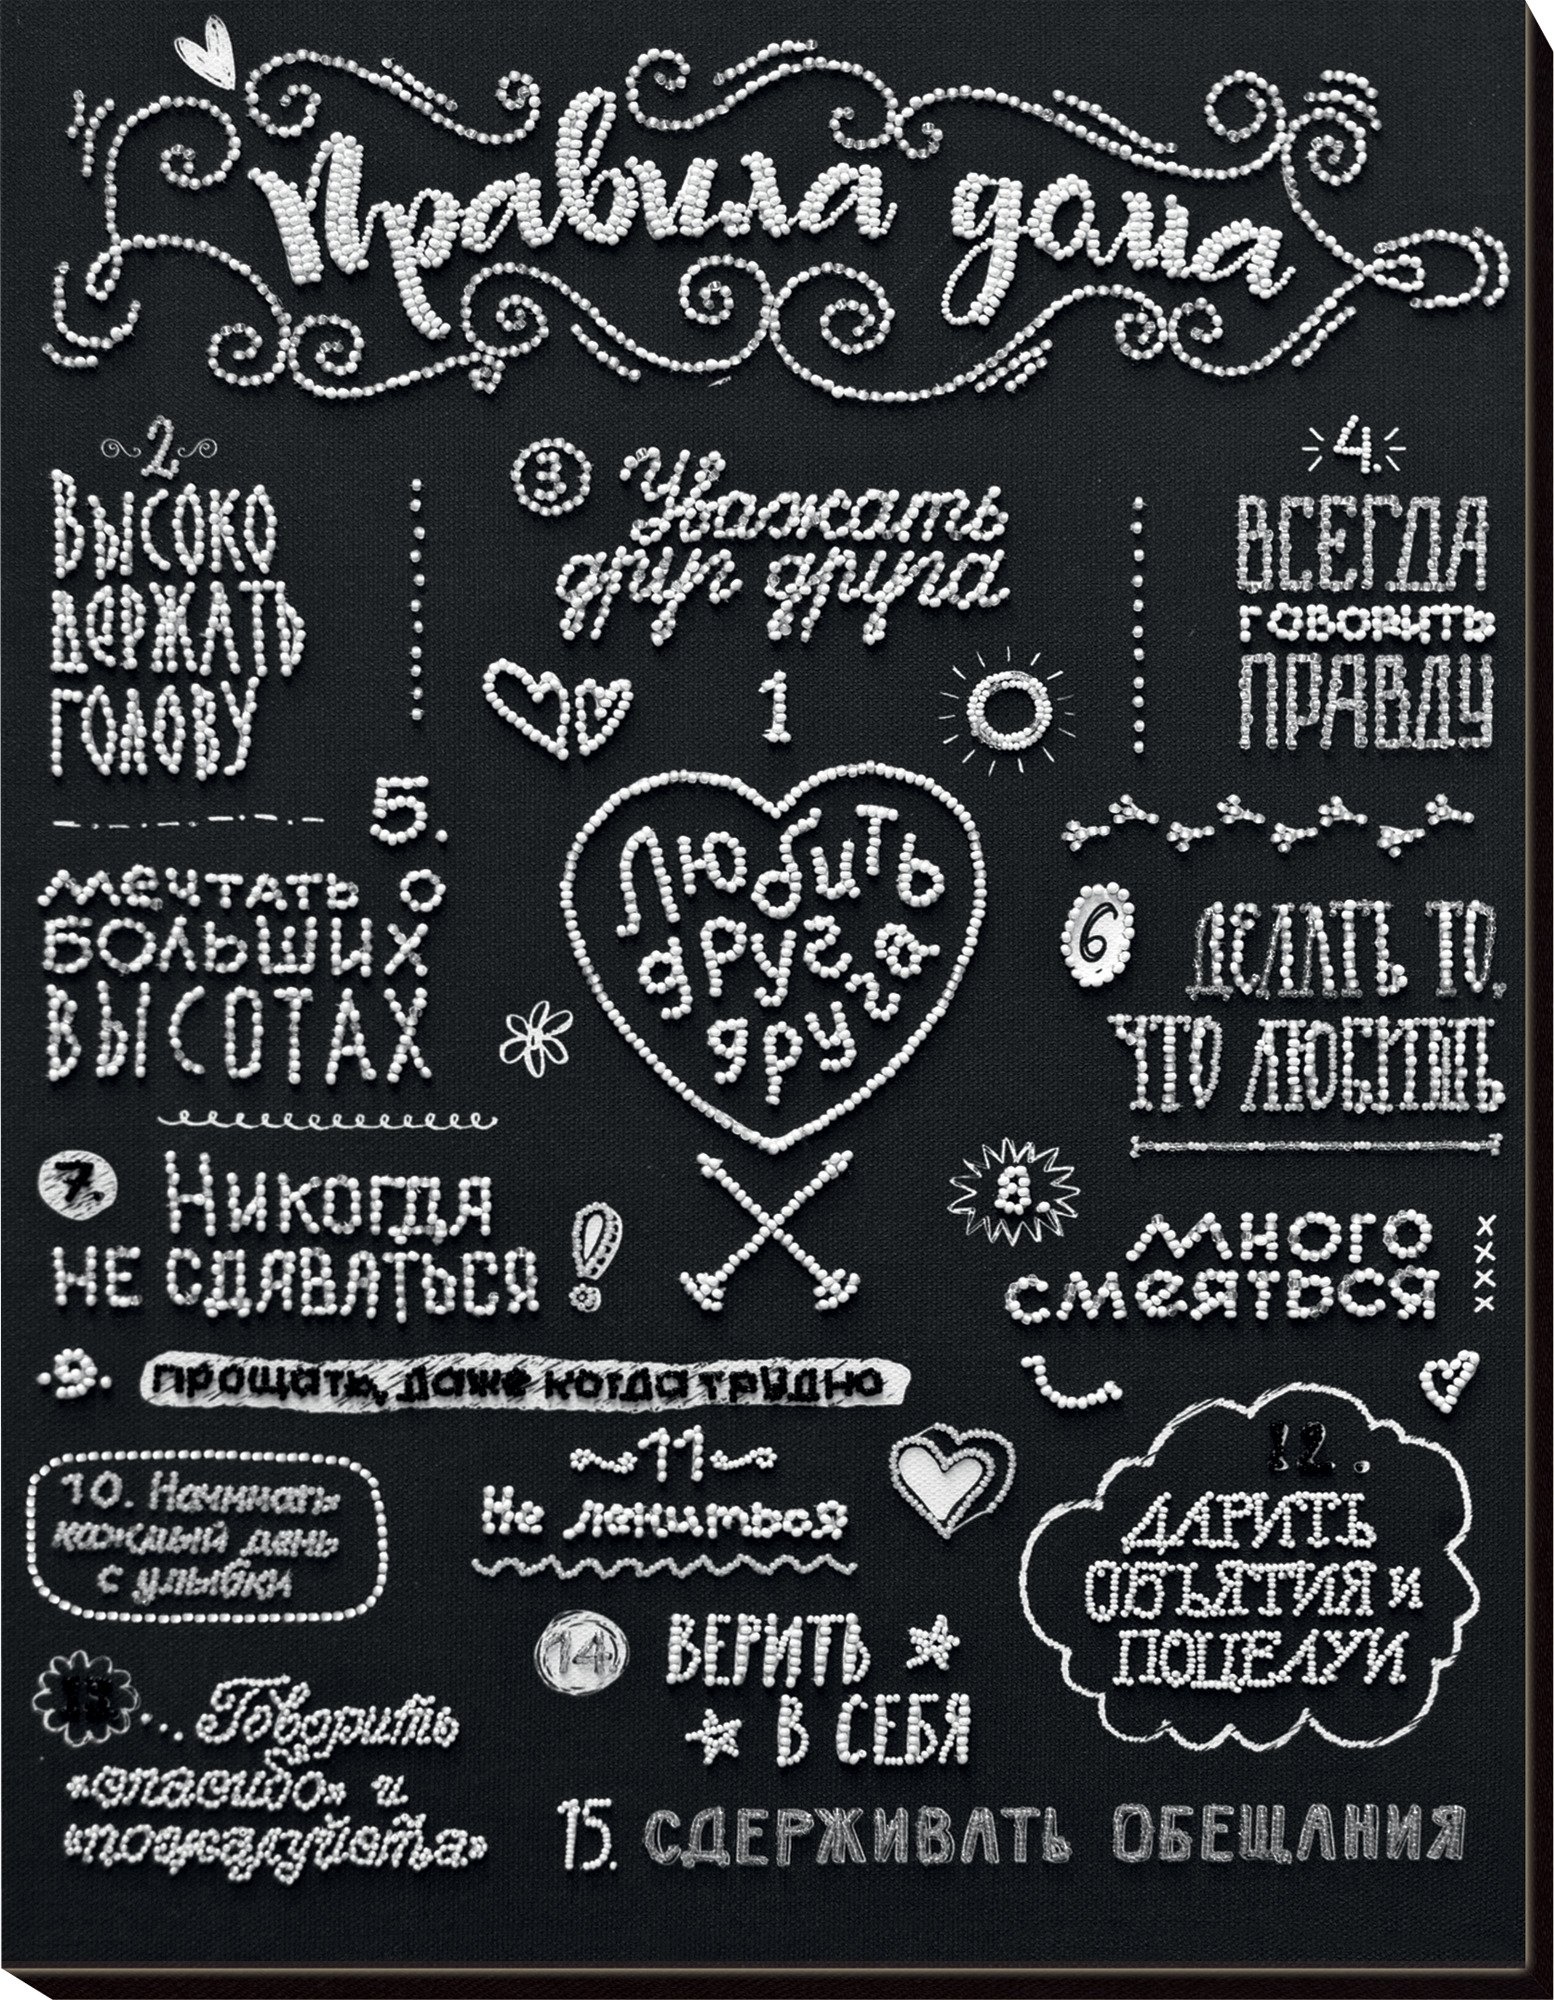 Правила дома
2
Высоко
держать
голову
3
Уважать
друг друга
4.
ВСЕГДА
говорить
ПРАВДУ
1
Любить
друг
друга
друга
5.
мечтать о
больших
высотах
6
ДЕЛАТЬ ТО,
ЧТО ЛЮБИТЬ
7.
Никогда
не сдаваться
!
8.
много
смеяться
xxxx
9.
прощать, даже когда трудно
10. Начинать
каждый день
с улыбки
11
Не лениться
12.
ДАРИТЬ
ОБЪЯТИЯ и
ПОЦЕЛУИ
13... Говорить
«спасибо» и
«пожалуйста»
14.
ВЕРИТЬ
В СЕБЯ
15. СДЕРЖИВАТЬ ОБЕЩАНИЯ